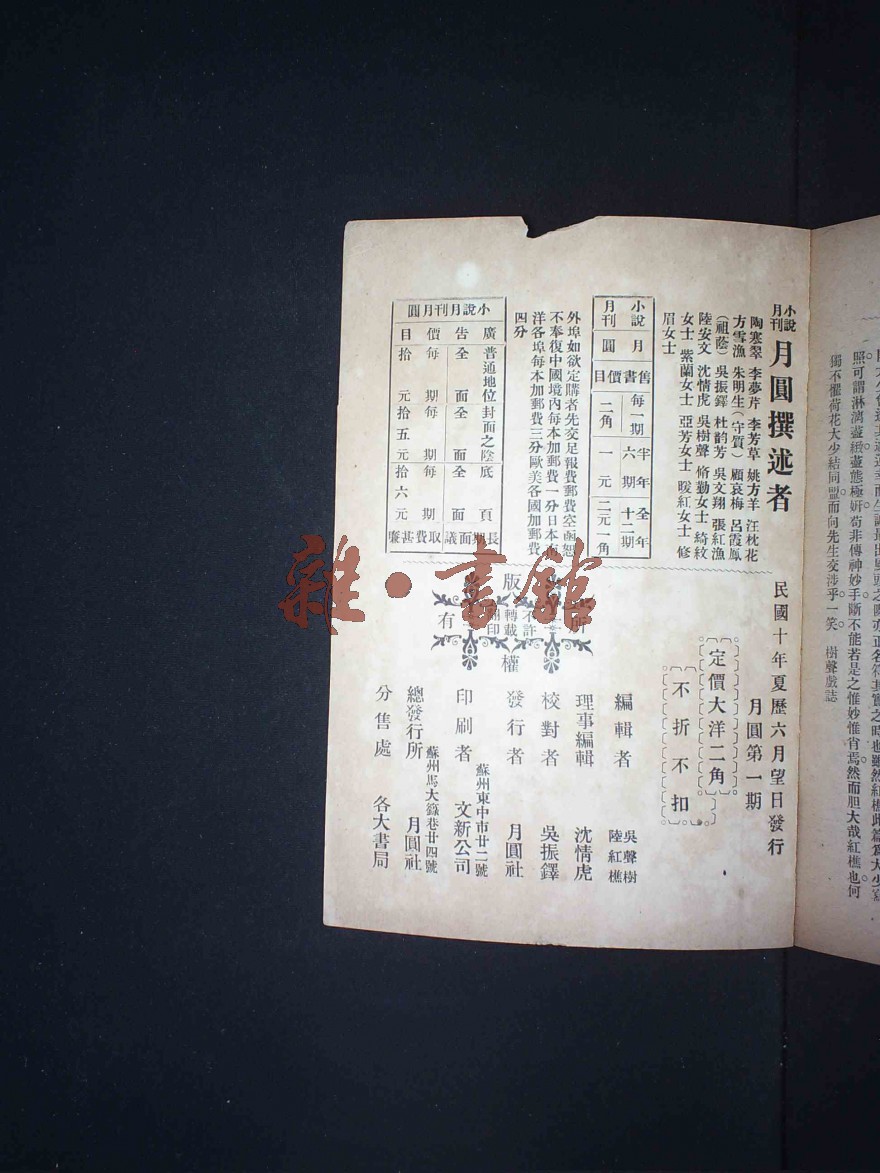 小說月刊 月圓撰述者
陶寒翠 李夢芹 李芳草 姚方羊 汪枕花
方雪漁 朱明生(守質) 顧哀梅 呂霞鳳
(祖蔭) 吳振鐸 杜韵芳 吳文翔 張紅漁
陸安文 沈情虎 吳樹聲 脩勤女士 綺紋
女士 紫蘭女士 亞芳女士 暖紅女士 修
眉女士
小說月刊 月圓
售書價目
每一期 二角
半年六期 一元
全年十二期 二元一角
外埠如欲定購者先交足報費郵費空函恕
不奉復中國境內每本加郵費一分日本南
洋各埠每本加郵費三分歐美各國加郵費
四分
小說月刊月圓
廣告價目
普通地位 全面每期 拾元
封面之陰 全面每期 拾五元
底頁 全面每期 拾六元
長期面議取費甚廉
民國十年夏歷六月望日發行
月圓第一期
定價大洋二角
不折不扣
版權所有
不許轉載翻印
編輯者 吳聲樹 陸紅樵
理事編輯 沈情虎
校對者 吳振鐸
發行者 月圓社
印刷者 蘇州東中市廿二號 文新公司
總發行所 蘇州馬大籙巷廿四號 月圓社
分售處 各大書局
照可謂淋漓盡緻盡態極妍苟非傳神妙手斷不能若是之惟妙惟肖焉然而胆大哉紅樵也何
獨不懼荷花大少結同盟而向先生交涉乎一笑 樹聲戲誌
雜·書館